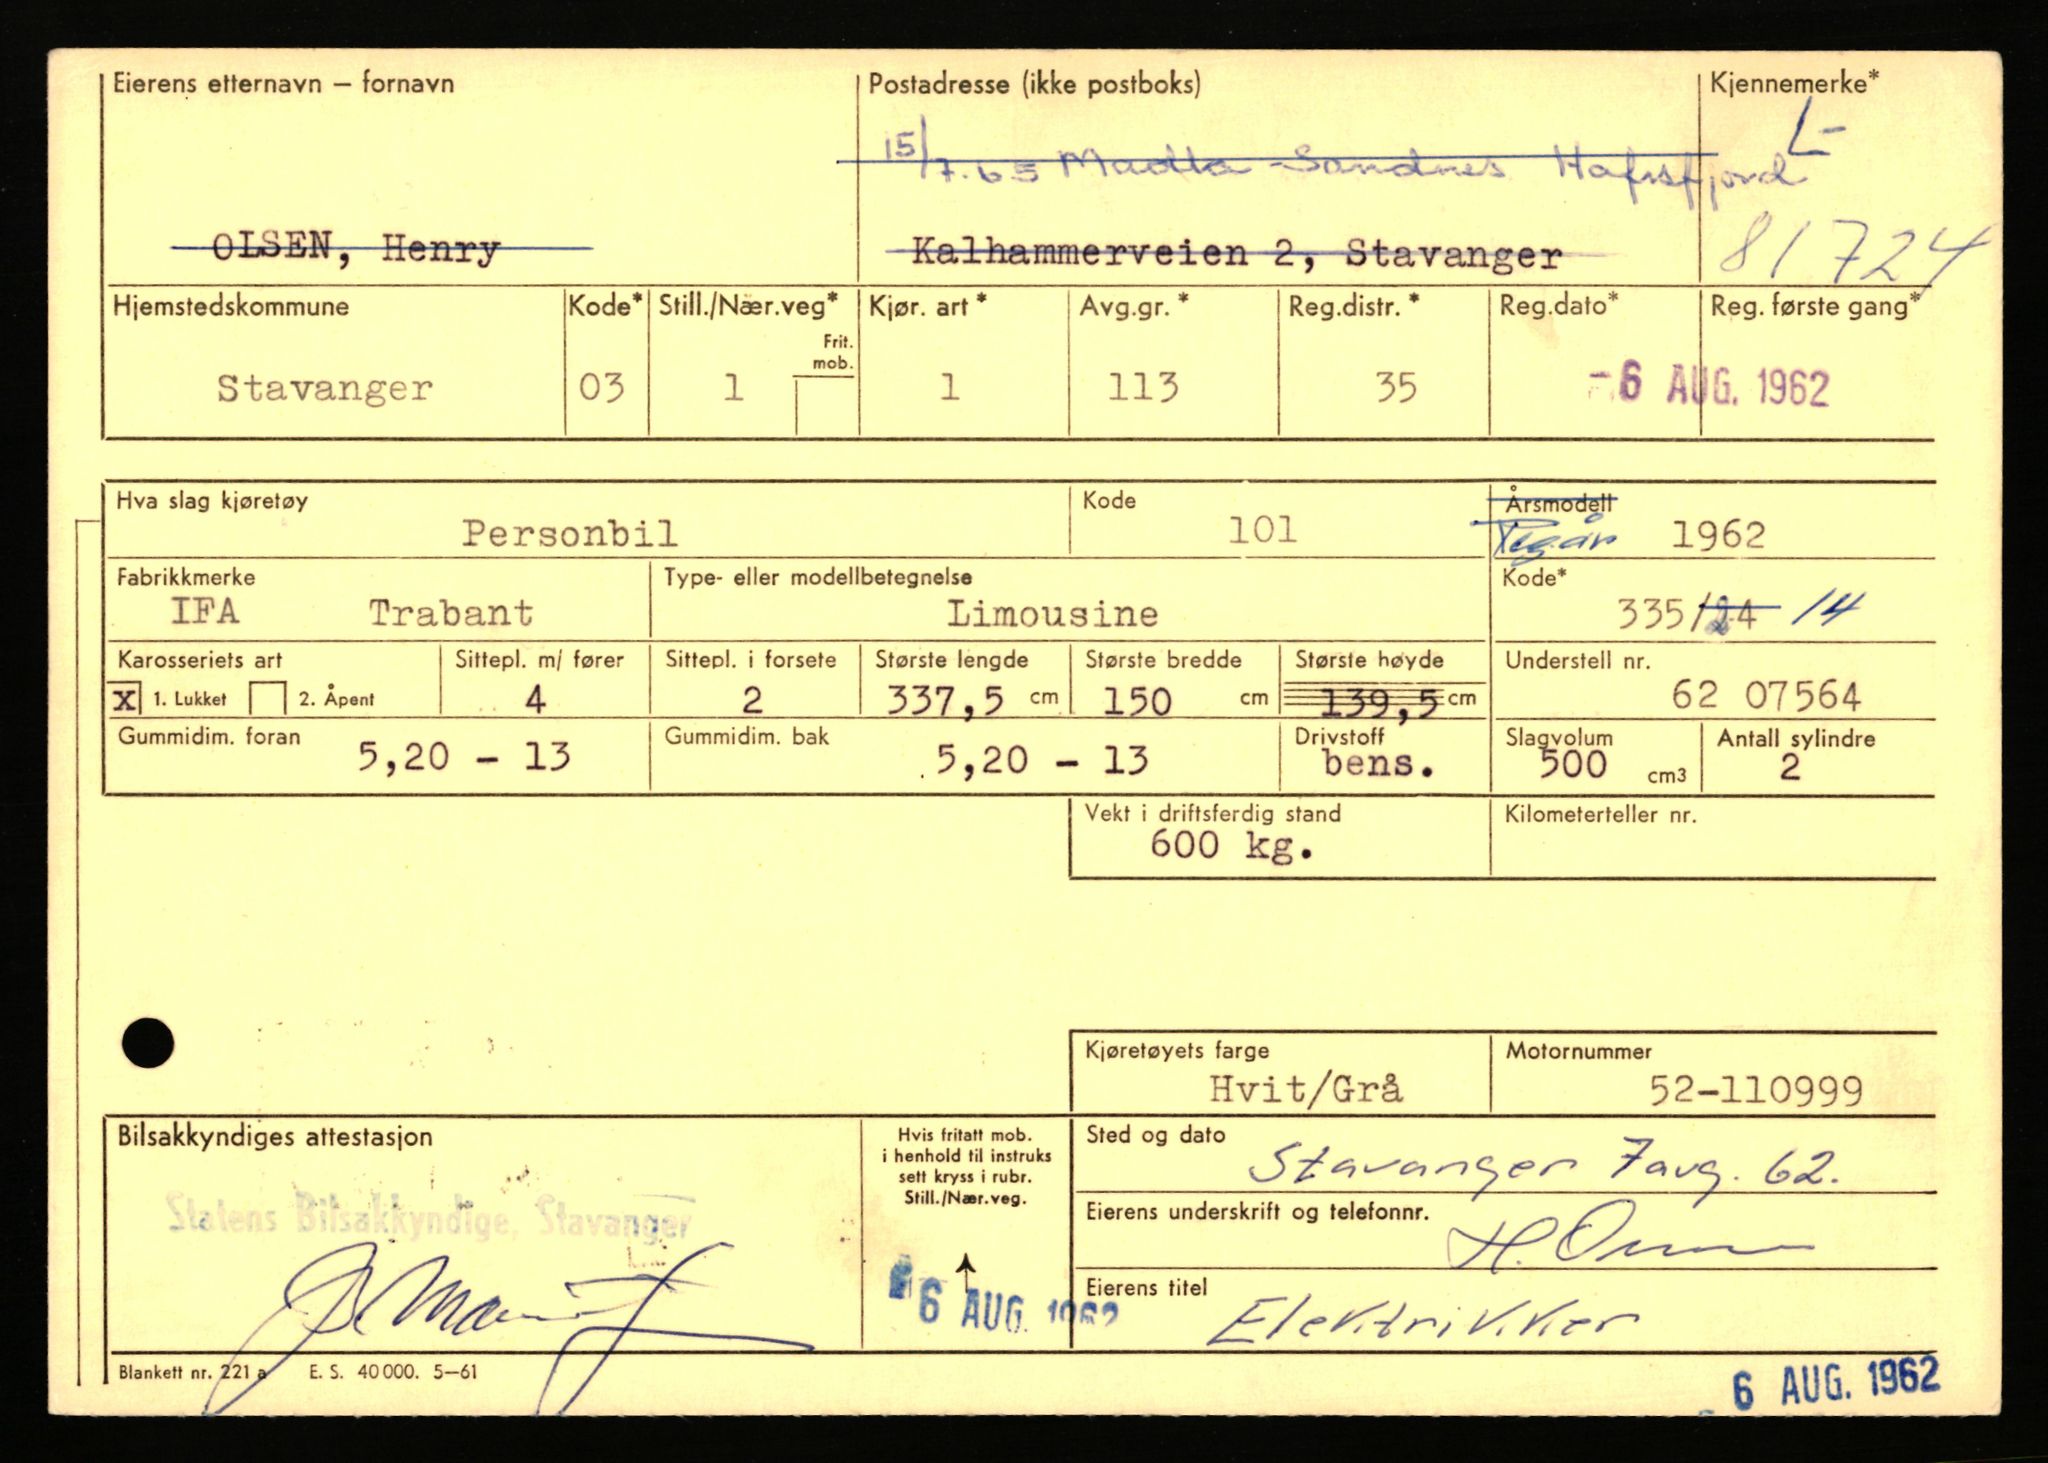 Eierens etternavn – fornavn Postadresse (ikke postboks) Kjennemerke*
15/7.65 Madla Sandnes Hafrsfjord L-
OLSEN, Henry Kalhammerveien 2, Stavanger 81724
Hjemstedskommune Kode* Still./Nær.veg* Kjør. art * Avg.gr. * Reg.distr. * Reg.dato* Reg. første gang*
Frit. mob.
Stavanger 03 1 1 113 35 -6 AUG. 1962
Hva slag kjøretøy Kode Årsmodell
Personbil 101 Reg.år 1962
Fabrikkmerke Type- eller modellbetegnelse Kode*
IFA Trabant Limousine 335/24 14
Karosseriets art Sittepl. m/ fører Sittepl. i forsete Største lengde Største bredde Største høyde Understell nr.
X 1. Lukket 2. Åpent 4 2 337,5 cm 150 cm 139,5 cm 62 07564
Gummidim. foran Gummidim. bak Drivstoff Slagvolum Antall sylindre
5,20 - 13 5,20 - 13 bens. 500 cm3 2
Vekt i driftsferdig stand Kilometerteller nr.
600 kg.
Kjøretøyets farge Motornummer
Hvit/Grå 52-110999
Bilsakkyndiges attestasjon Hvis fritatt mob. i henhold til instruks sett kryss i rubr. Still./Nær.veg. Sted og dato
Stavanger 7 aug. 62.
Statens Bilsakkyndige, Stavanger
Eierens underskrift og telefonnr.
H.
Eierens titel
6 AUG. 1962
Elektrikker
Blankett nr. 221 a E. S. 40 000. 5–61
6 AUG. 1962